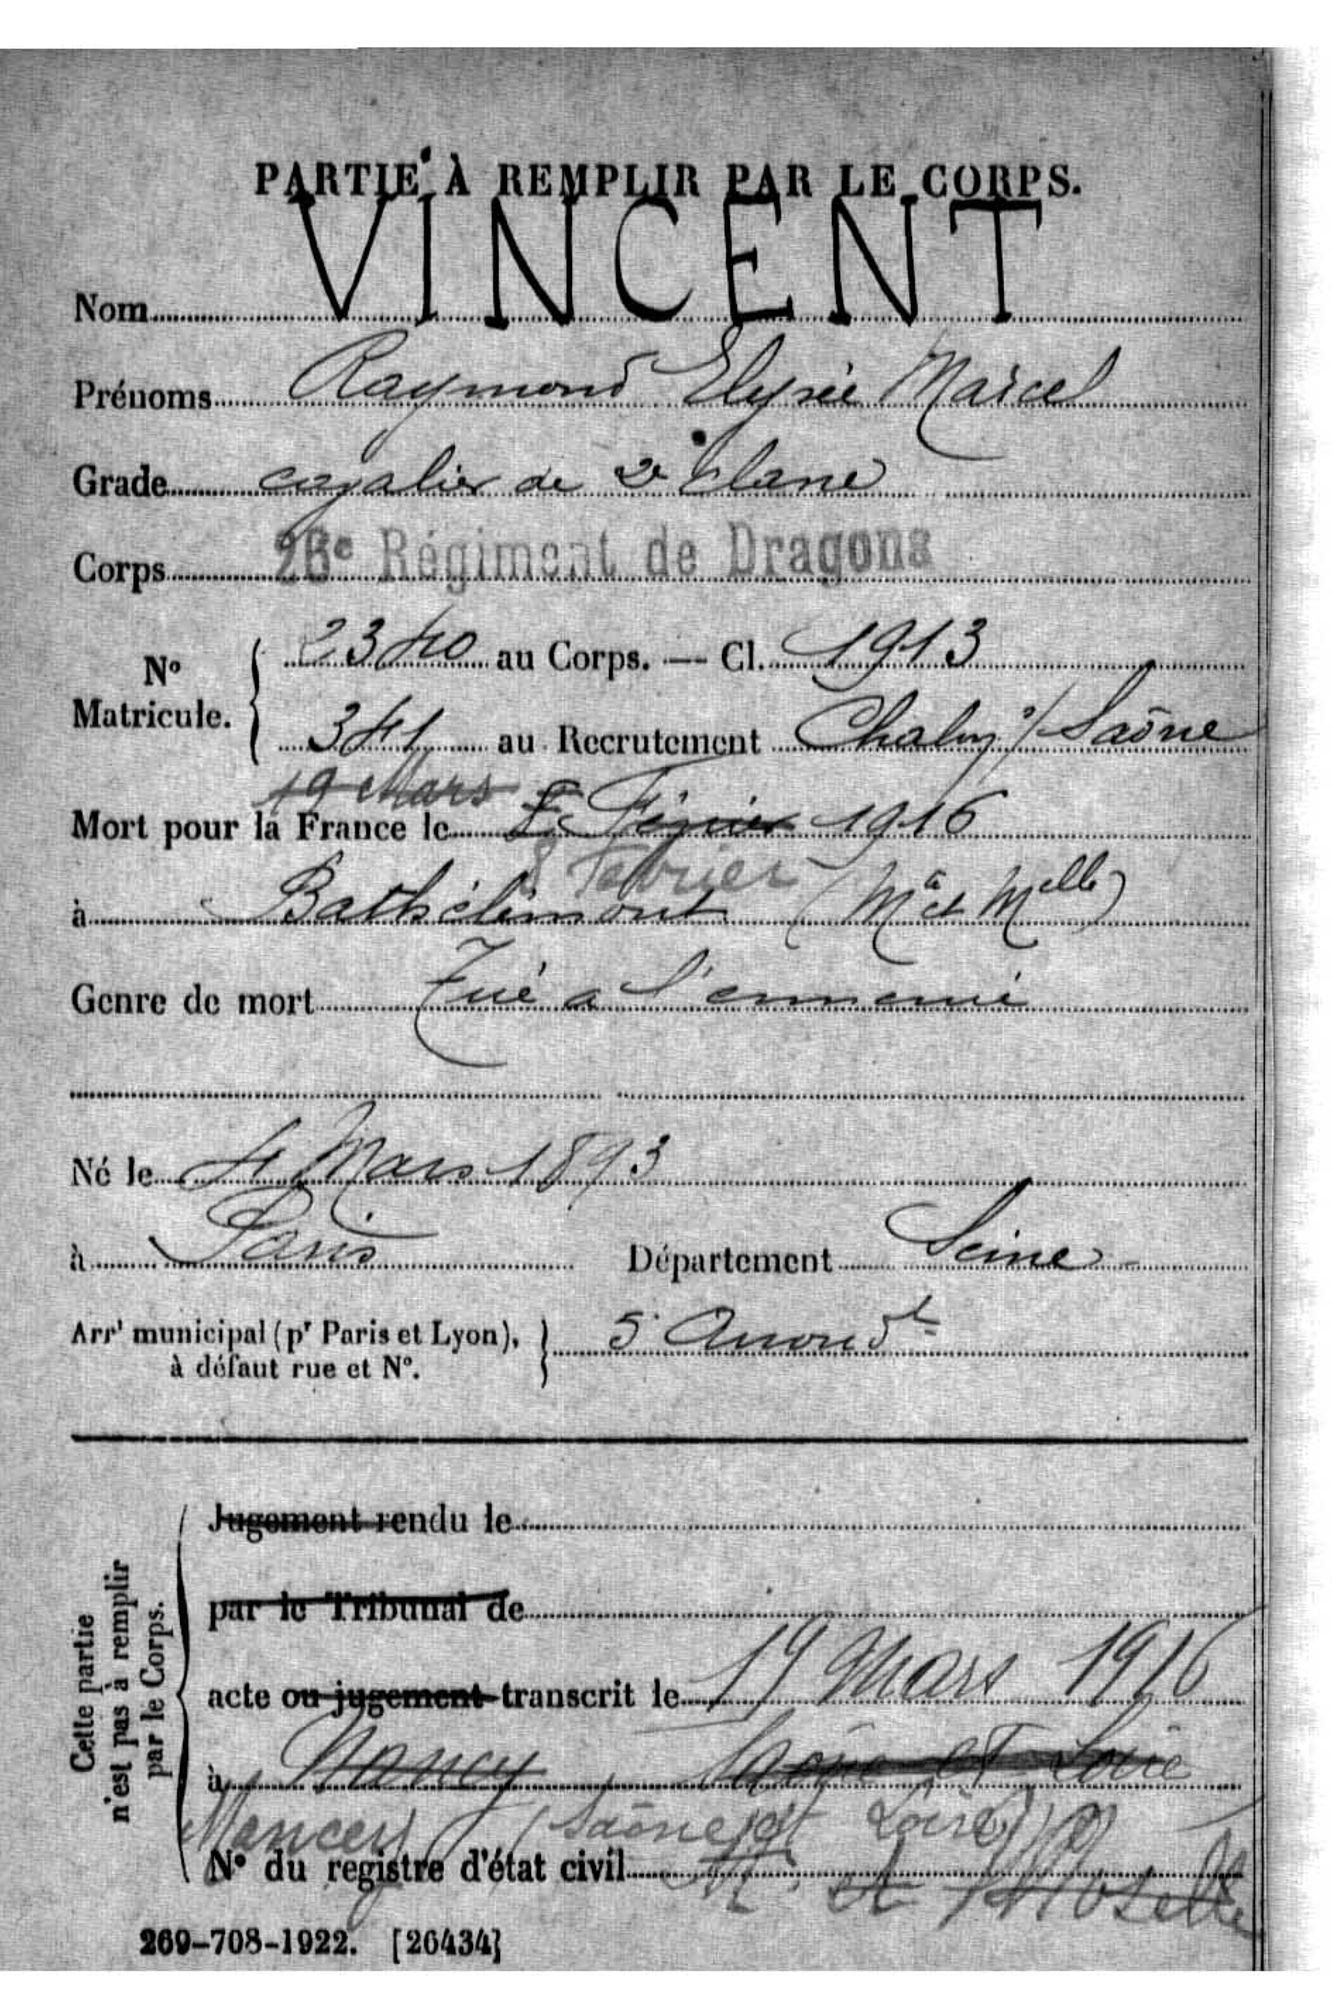 PARTIE À REMPLIR PAR LE CORPS.
Nom VINCENT
Prénoms Raymond Elysée Marcel
Grade cavalier de 2e classe
Corps 26e Régiment de Dragons
N° Matricule. 2340 au Corps. — Cl. 1913
341 au Recrutement Chalon s/ Saône
19 Mars
Mort pour la France le 8 Février 1916
8 Février
à Bathélémont (Mthe et Melle)
Genre de mort Tué à l'ennemi
Né le 4 Mars 1893
à Paris Département Seine
Arrt municipal (pr Paris et Lyon), 5e Arrondt
à défaut rue et N°.
Cette partie n'est pas à remplir par le Corps.
Jugement rendu le
par le Tribunal de
acte ou jugement transcrit le 19 Mars 1916
à Nancy Saône et Loire
Mancey (Saône et Loire)
N° du registre d'état civil
M. et Moselle
269-708-1922. [26434]